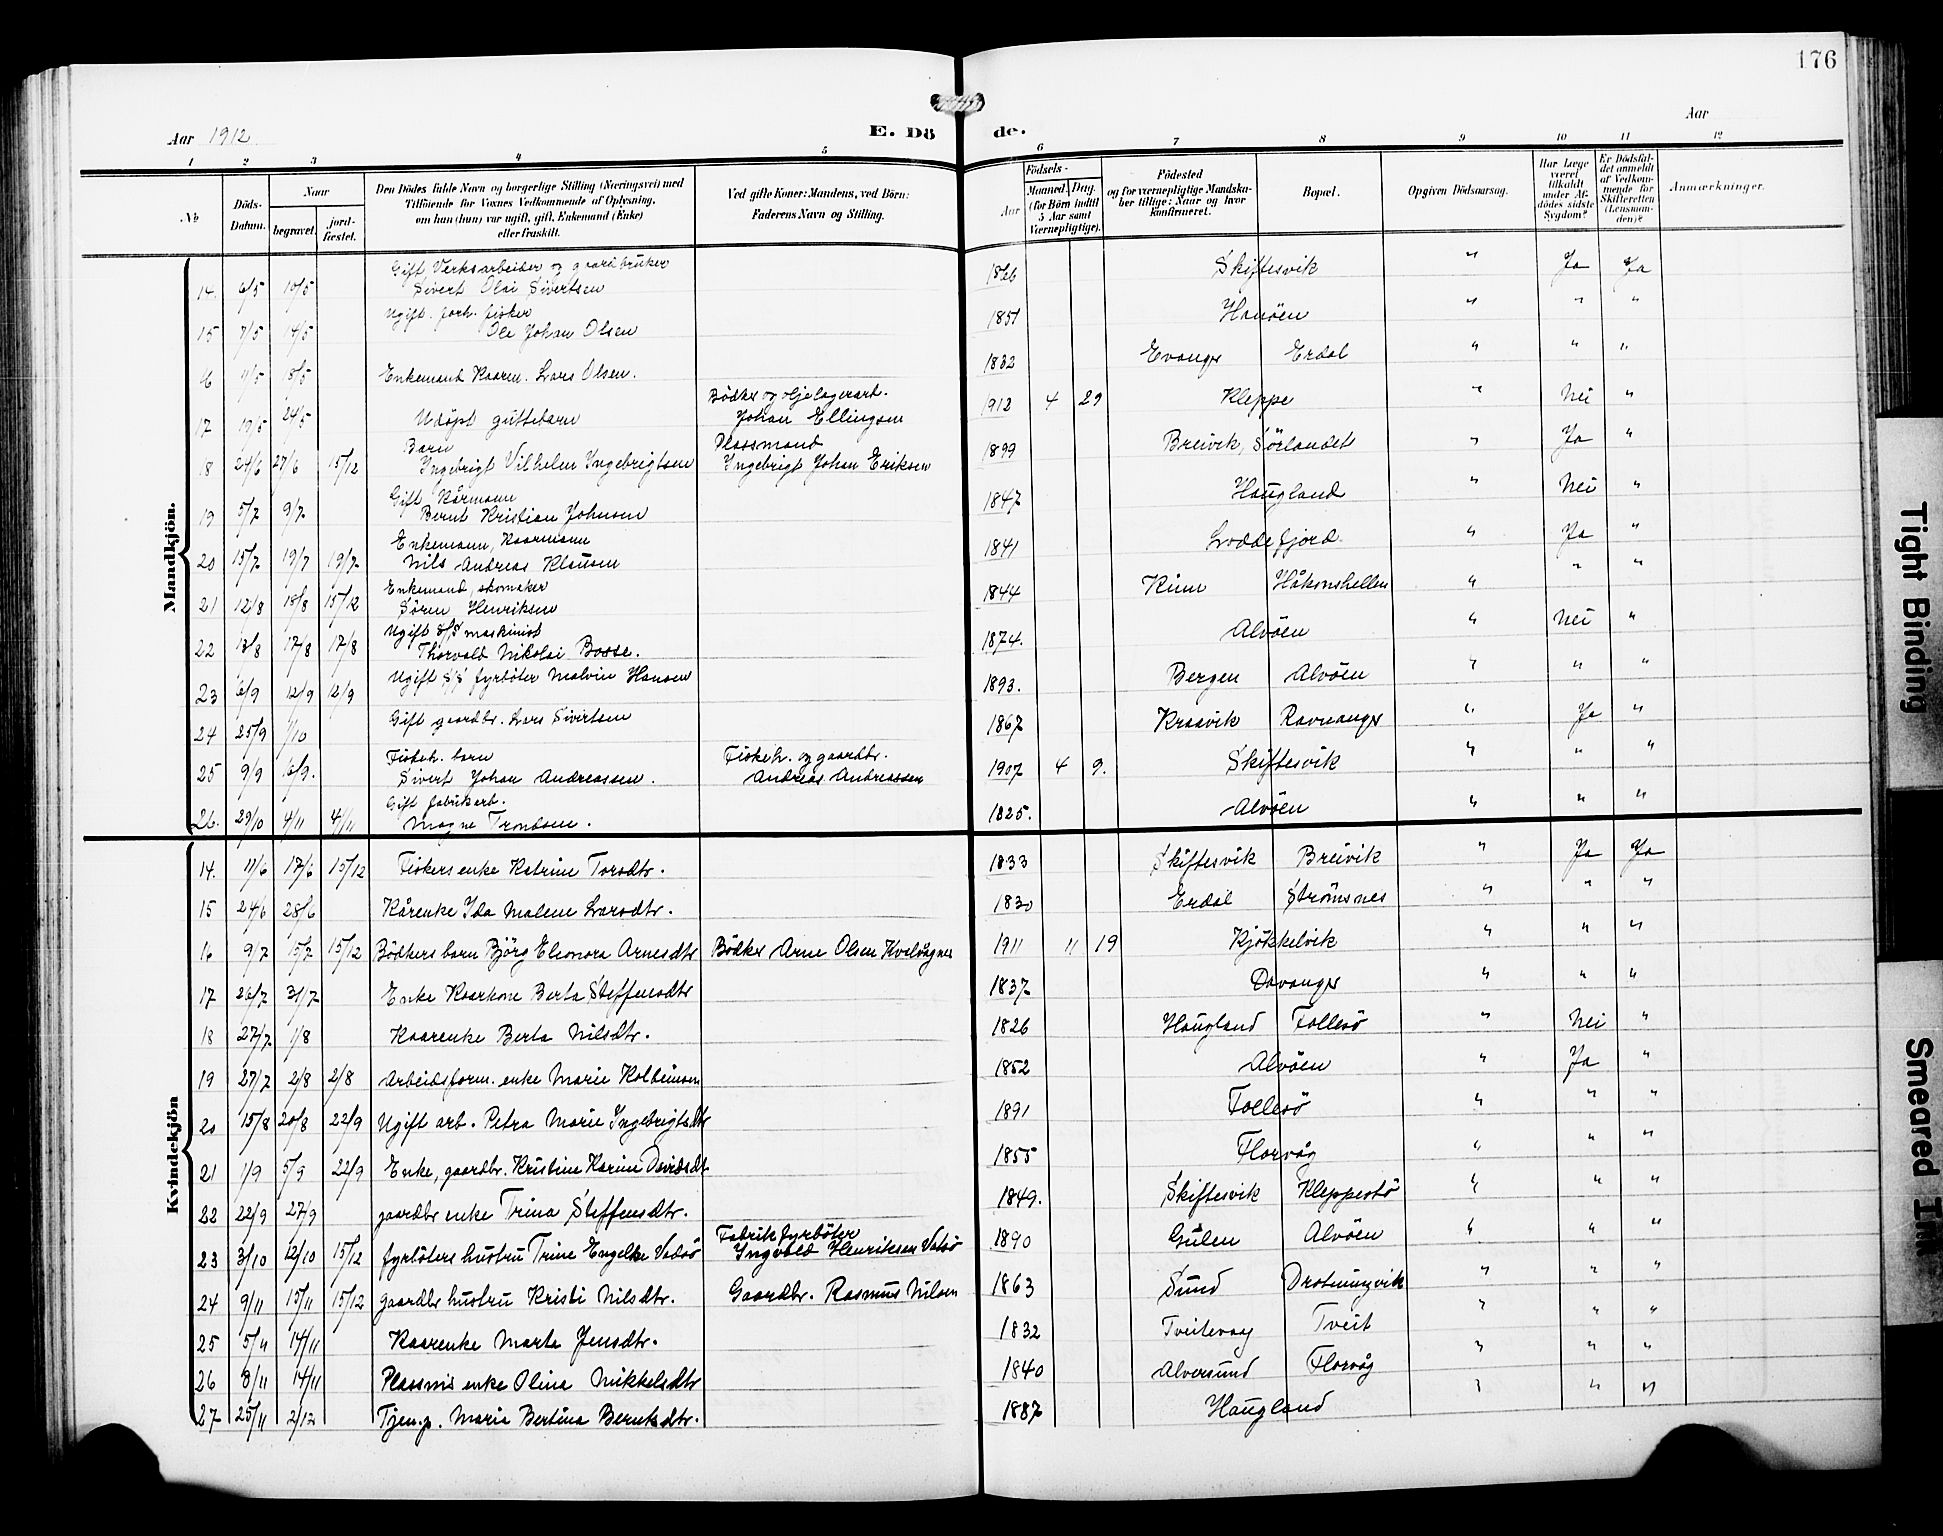 176
Aar 1912
E. Dö
de.
Aar
1 2 3 4 5 6 7 8 9 10 11 12
No
Döds-Datum.
Naar
begravet.
jord-fæstet.
Den Dödes fulde Navn og borgerlige Stilling (Næringsvei) med
Tilföiende for Voxnes Vedkommende af Oplysning,
om han (hun) var ugift, gift, Enkemand (Enke)
eller fraskilt.
Ved gifte Koner: Mandens, ved Börn:
Faderens Navn og Stilling.
Födsels-
Aar
Maaned. Dag.
(for Börn indtil
5 Aar samt
Værnepligtige).
Födested
og for værnepligtige Mandska-
ber tillige: Naar og hvor
konfirmeret.
Bopæl.
Opgiven Dödsaarsag.
Har Læge
været
tilkaldt
under Af-
dödes sidste
Sygdom?
Er Dödsfal-
det anmeldt
af Vedkom-
mende for
Skifteretten
(Lensman-
den)?
Anmærkninger.
Mandkjön.
Gift, Verksarbeider og gaardbruker
14. 6/5 10/5 Sivert Olai Sivertsen 1866 Skiftesvik " Ja Ja
Ugift. forh. fisker
15 7/5 14/5 Ole Johan Olsen 1851 Hanöen " " "
16 11/5 18/5 Enkemand Kaarm. Lars Olsen. 1832 Evanger Erdal " " "
Bödker og oljelagerarb.
17 19/5 24/5 Udöpt guttebarn Johan Ellingsen 1912 4 29 Kleppe " Nei "
Barn Plassmand
18 24/6 27/6 15/12 Ingebrigt Vilhelm Ingebrigtsen Ingebrigt Johan Eriksen 1899 Breivik, Sørlandet " Ja "
Gift Kårmann
19 5/7 9/7 Bernt Kristian Johnsen 1847 Haugland " Nei "
Enkemann, Kaarmann
20 15/7 19/7 19/7 Nils Andreas Klausen 1841 Loddefjord. " Ja "
Enkemand, skomaker
21 12/8 18/8 15/12 Sören Henriksen 1844 Kinn Håkonshellen " " "
Ugift S/S maskinist
22 13/8 17/8 17/8 Thorvald Nikolai Bosse. 1874. Alvöen " Nei "
23 6/9 12/9 12/9 Ugift S/S fyrböter Malvin Hansen 1893. Bergen Alvöen " " "
24 25/9 1/10 Gift gaardbr. Lars Sivertsen 1867 Kraavik Ravnanger " Ja "
Fiskeh. barn Fiskeh. og gaardbr.
25 9/9 16/9. Sivert Johan Andreassen. Andreas Andreassen 1907 4 9. Skiftesvik " " "
Gift fabrikarb.
26. 29/10 4/11 4/11 Mogne Trondsen. 1825. Alvöen " " "
Kvindekjön
14. 11/6 17/6 15/12 Fiskers enke Katrine Torsdtr. 1833 Skiftesvik Breivik " Ja Ja
15 24/6 28/6 Kårenke Ida Malene Larsdtr. 1830 Erdal Strömsnes " " "
16 9/7 15/7 15/12 Bödkers barn Björg Eleonora Arnesdtr Bödker Arne Olsen Kvelvagnes 1911 11 19 Kjökkelvik " " "
17 26/7 31/7 Enke Kaarkone Berta Steffensdtr 1837 Davanger " " "
18 27/7 1/8 Kaarenke Berta Nilsdtr. 1826 Haugland Follesö " Nei "
19 27/7 2/8 2/8 Arbeidsform. enke Marie Kolbeinsen 1852 Alvöen " Ja "
20 15/8 20/8 22/9 Ugift arb. Petra Marie Ingebrigtsdtr 1891 Follesö " " "
21 1/9 5/9 22/9 Enke, gaardbr. Kristine Karine Davidsdt 1855 Florvåg " " "
22 22/9 27/9 gaardbr enke Trina Steffensdtr. 1849. Skiftesvik Kleppestö " " "
Fabrikfyrböter
23 3/10 12/10 15/12 fyrböters hustru Trine Engelke Vadsö Ingvald Henriksen Vadsö 1890 Gulen Alvöen " " "
24 9/11 15/11 15/12 gaardbr hustru Kristi Nilsdtr. Gaardbr. Rasmus Nilsen 1863 Sund Drotningvik " " "
25 5/11 14/11 Kaarenke Marta Jensdtr. 1832 Tveitevag Tveit " " "
26 8/11 14/11 Plassms enke Olina Mikkelsdtr 1840 Alversund Florvåg " " "
27 25/11 2/12 Tjen.p. Maria Bertina Berntsdtr. 1887 Haugland " " "
Tight Binding
Smeared Ink